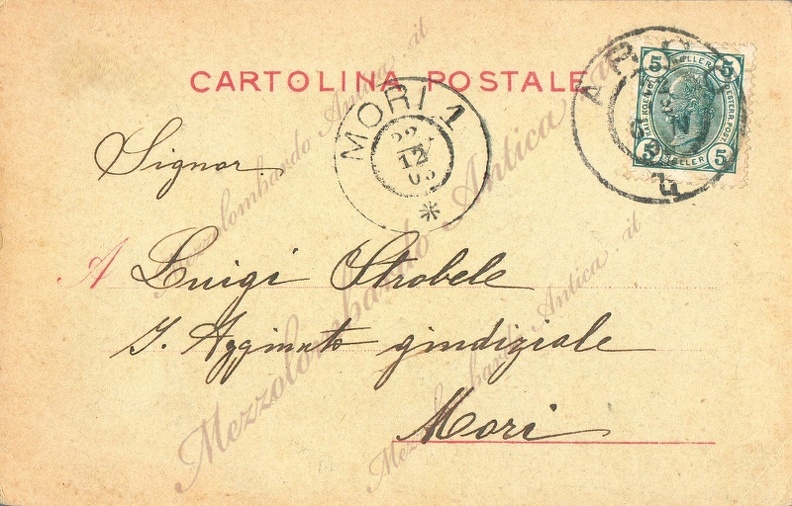 CARTOLINA POSTALE
MORI 1
22
12
03
5 HELLER 5
5 HELLER 5
Signor.
A Luigi Strobele
I. Aggiunto giudiziale
Mori
Mezzolombardo Antica .it
Mezzolombardo Antica .it
Mezzolombardo Antica .it